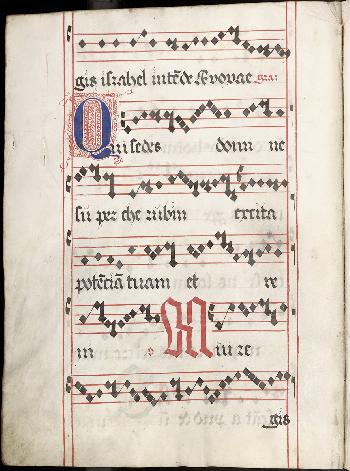 gis israhel intēde Evovae gra:
Qui sedes domi ne
su per che rubin excita
potēciā tuam et ve
ni Qui re
gis